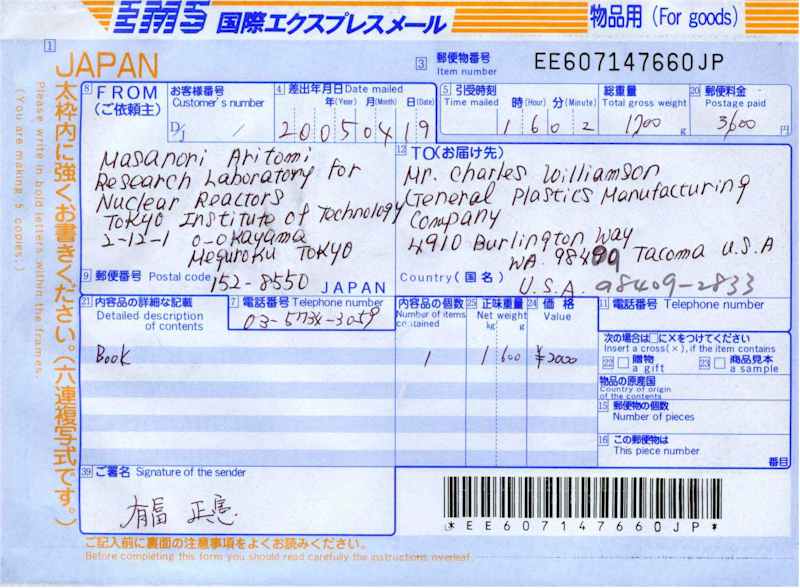 EMS 国際エクスプレスメール
物品用 (For goods)
1
JAPAN
3 郵便物番号
Item number
EE607147660JP
太枠内に強くお書きください。(六連複写式です。)
Please write in bold letters within the frames.
(You are making 5 copies.)
8 FROM
(ご依頼主)
お客様番号
Customer's number
D/J /
4 差出年月日 Date mailed
年(Year) 月(Month) 日(Date)
20050419
5 引受時刻
Time mailed
時(Hour) 分(Minute)
1602
総重量
Total gross weight
1700 g
20 郵便料金
Postage paid
3600 円
Masanori Aritomi
Research Laboratory for
Nuclear Reactors
Tokyo Institute of Technology
2-12-1 O-okayama
Meguroku Tokyo
9 郵便番号 Postal code
152-8550 JAPAN
12 TO(お届け先)
Mr. Charles Williamson
General Plastics Manufacturing
Company
4910 Burlington Way
WA. 98409 Tacoma U.S.A
Country (国名)
U.S.A. 98409-2833
21 内容品の詳細な記載
Detailed description
of contents
7 電話番号 Telephone number
03-5734-3059
内容品の個数
Number of items
contained
25 正味重量
Net weight
kg g
24 価格
Value
11 電話番号 Telephone number
Book
1
1 600
¥2000
次の場合は□に×をつけてください
Insert a cross(×), if the item contains
22 贈物
a gift
23 商品見本
a sample
物品の原産国
Country of origin
of the contents
15 郵便物の個数
Number of pieces
16 この郵便物は
This piece number
番目
39 ご署名 Signature of the sender
有冨 正憲
*EE607147660JP*
ご記入前に裏面の注意事項をよくお読みください。
Before completing this form you should read carefully the instructions overleaf.